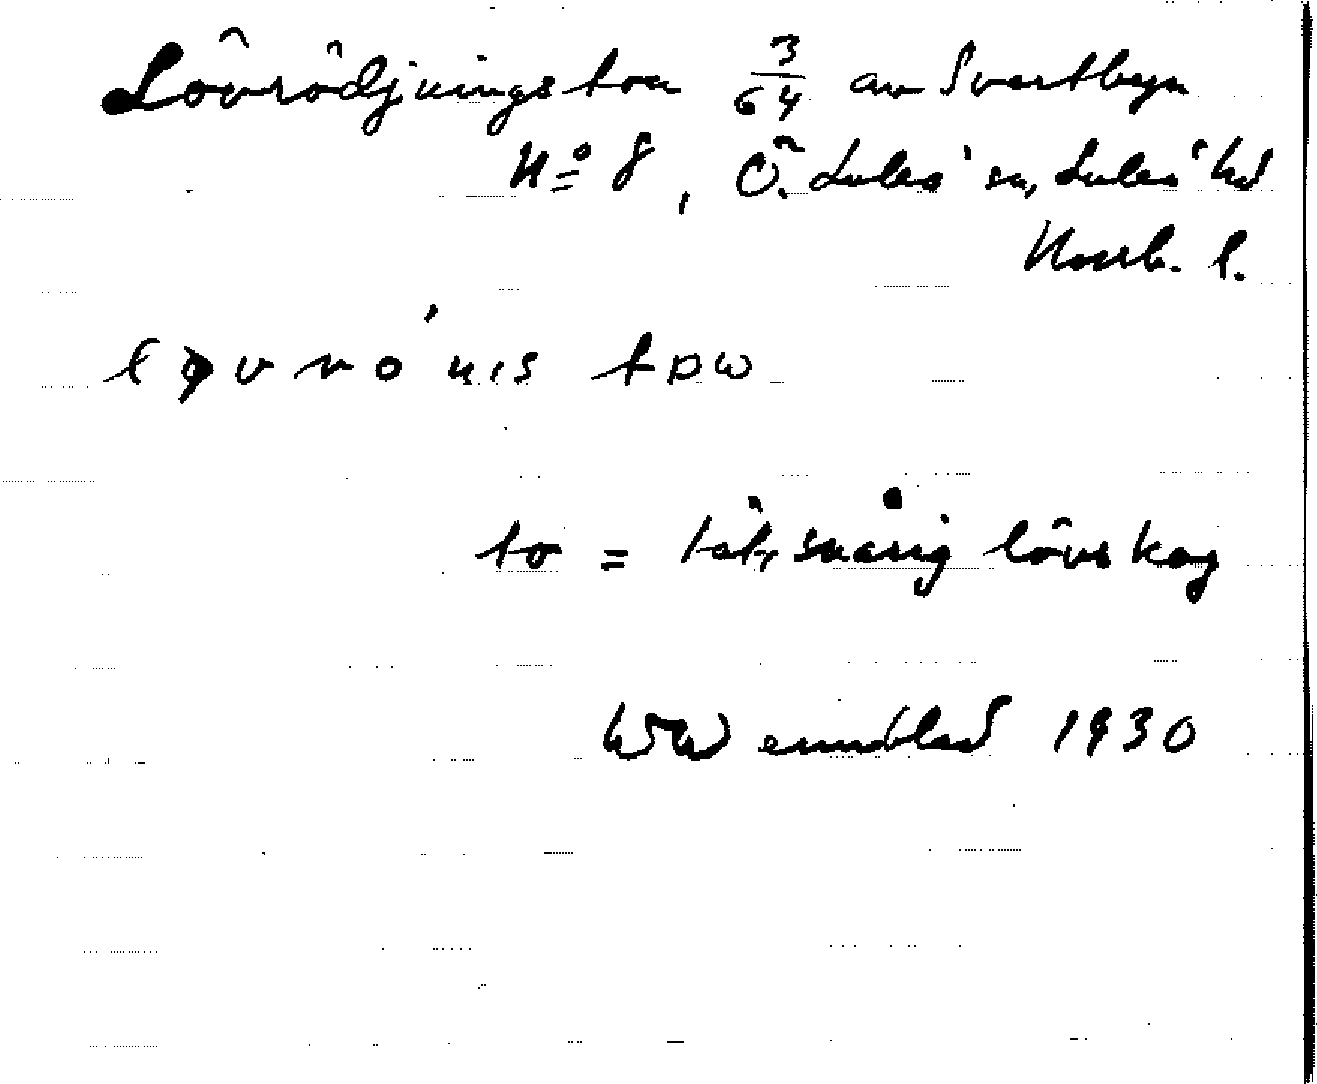 Lövrödjningston 3/64 av Svartbyn
N:o 8, Ö. Luleå sn, Luleå hd
Norrb. l.
to = tät, snårig lövskog
W Wennblad 1930